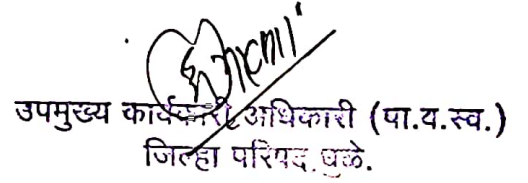 उपमुख्य कार्यकारी अधिकारी (पा.य.स्व.)
जिल्हा परिषद धुळे.